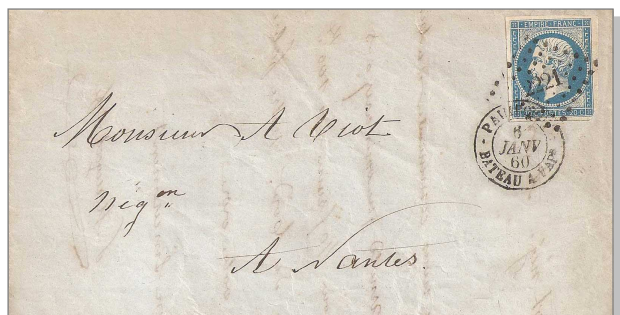 EMPIRE FRANC
221
6
JANV
60
BATEAU A VAP
Monsieur A Viot
Neg on
A Nantes.